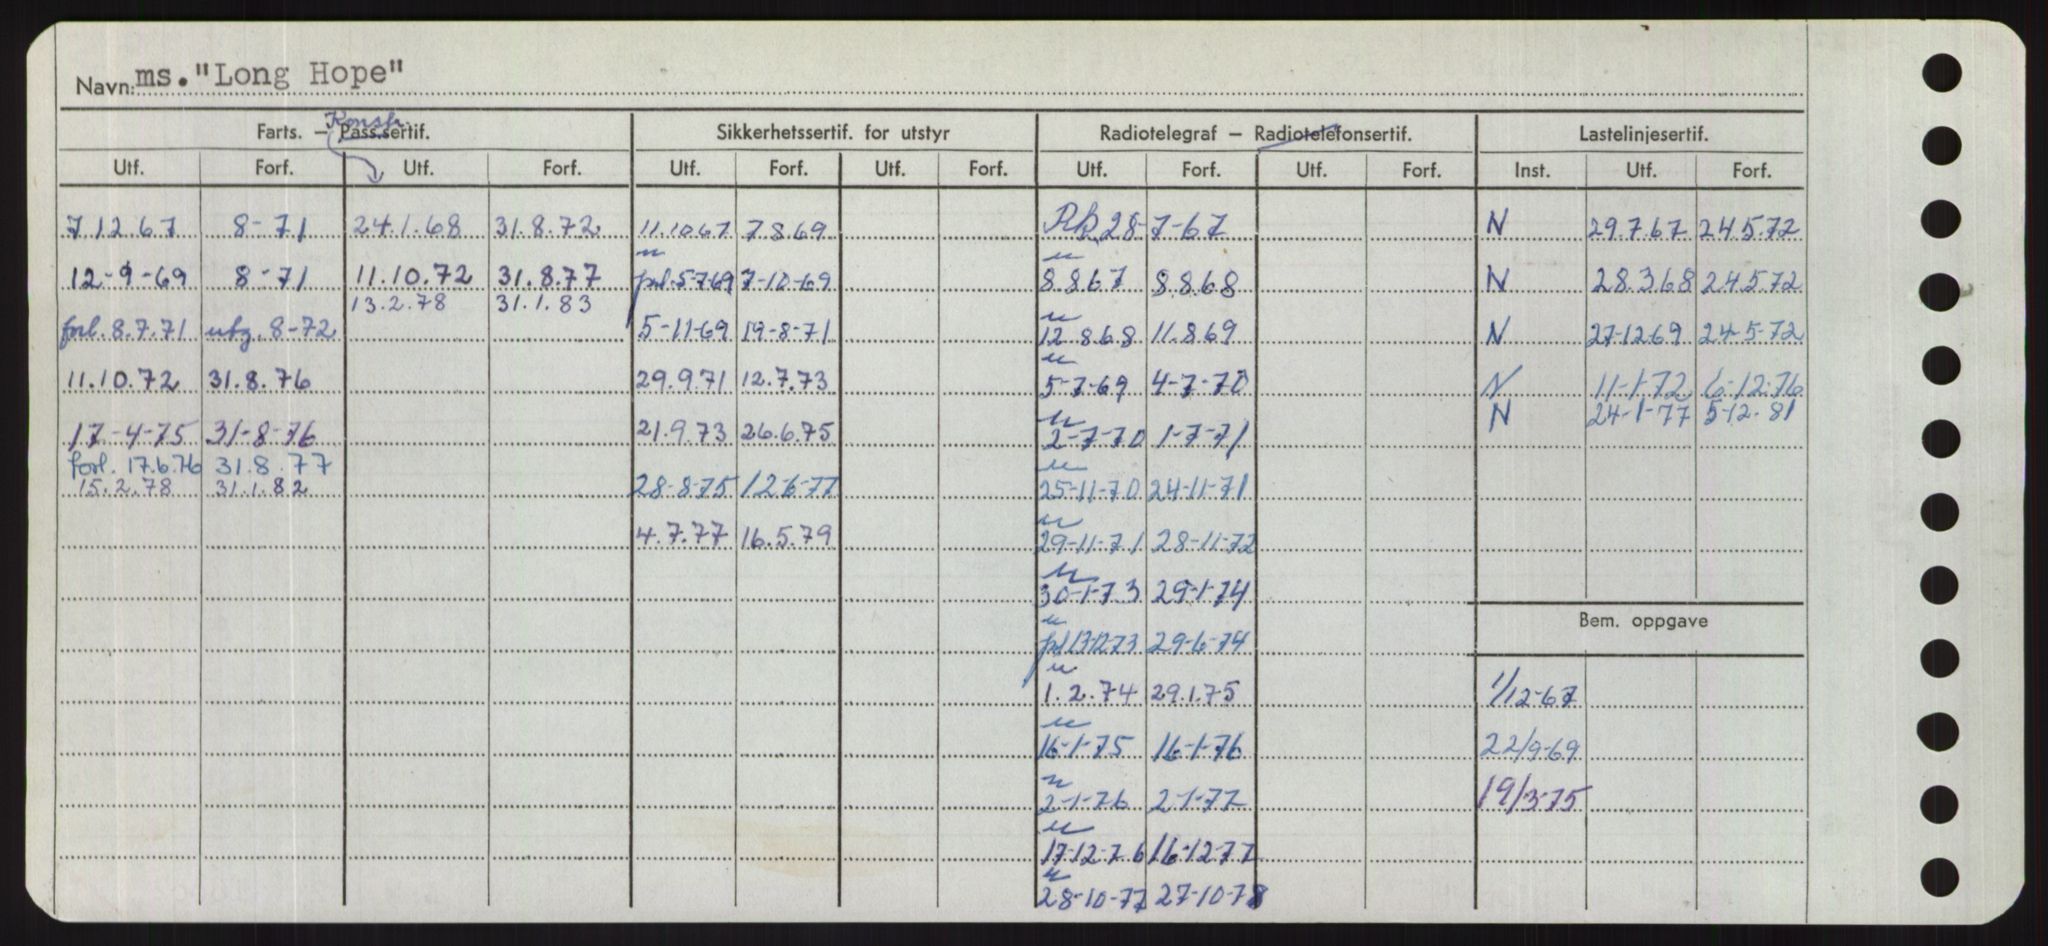 Navn: ms. "Long Hope"
Konstr.
Farts. – Pass.sertif. Sikkerhetssertif. for utstyr Radiotelegraf – Radiotelefonsertif. Lastelinjesertif.
Utf. Forf. Utf. Forf. Utf. Forf. Utf. Forf. Utf. Forf. Utf. Forf. Inst. Utf. Forf.
7.12.67 8-71 24.1.68 31.8.72 11.10.67 7.8.69 28-7-67 N 29.7.67 24.5.72
12-9-69 8-71 11.10.72 31.8.77 5-7-69 7-10-69 8.8.67 8.8.68 N 28.3.68 24.5.72
13.2.78 31.1.83
forl. 8.7.71 utg. 8-72 5-11-69 19-8-71 12.8.68 11.8.69 N 27-12-69 24-5-72
11.10.72 31.8.76 29.9.71 12.7.73 5-7-69 4-7-70 N 11-1-72 6-12-76
N 24-1-77 5-12-81
17-4-75 31-8-76 21.9.73 26.6.75 2-7-70 1-7-71
forl. 17.6.76 31.8.77
15.2.78 31.1.82 28-8-75 12-6-77 25-11-70 24-11-71
4.7.77 16.5.79 29-11-71 28-11-72
30-1-73 29-1-74
Bem. oppgave
13-12-73 29-6-74
1.2.74 29.1.75 1/12-67
16-1-75 16-1-76 22/9-69
2-1-76 2-1-77 19/3-75
17-12-76 16-12-77
28-10-77 27-10-78